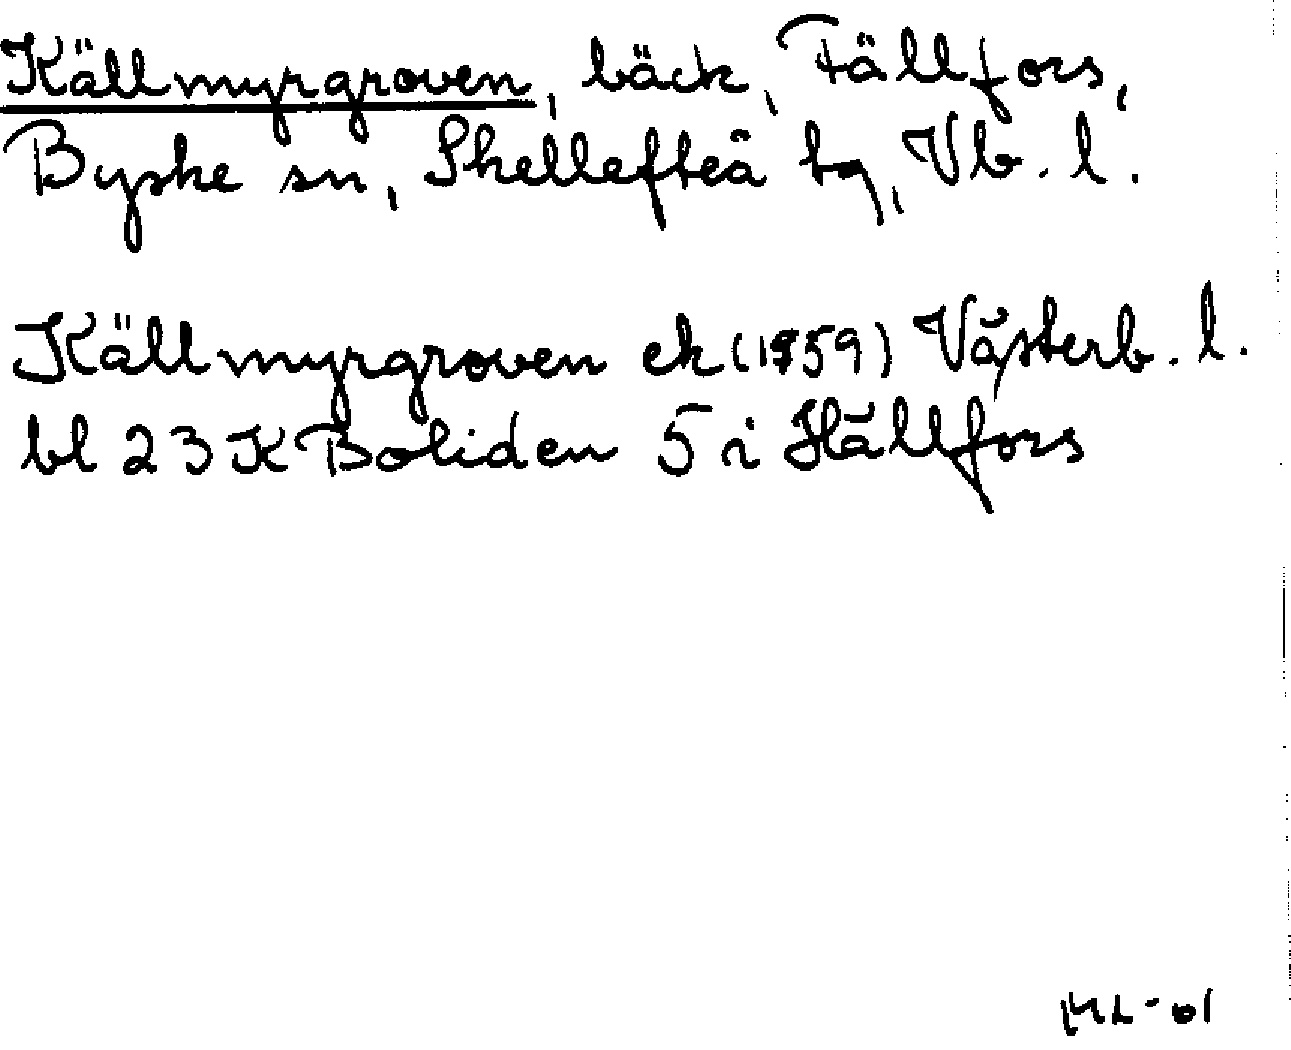 Källmyrgroven, bäck, Fällfors,
Byske sn, Skellefteå tg, Vb. l.
Källmyrgroven ek (1959) Västerb. l.
bl 23 K Boliden 5 i Hällfors
ML-01